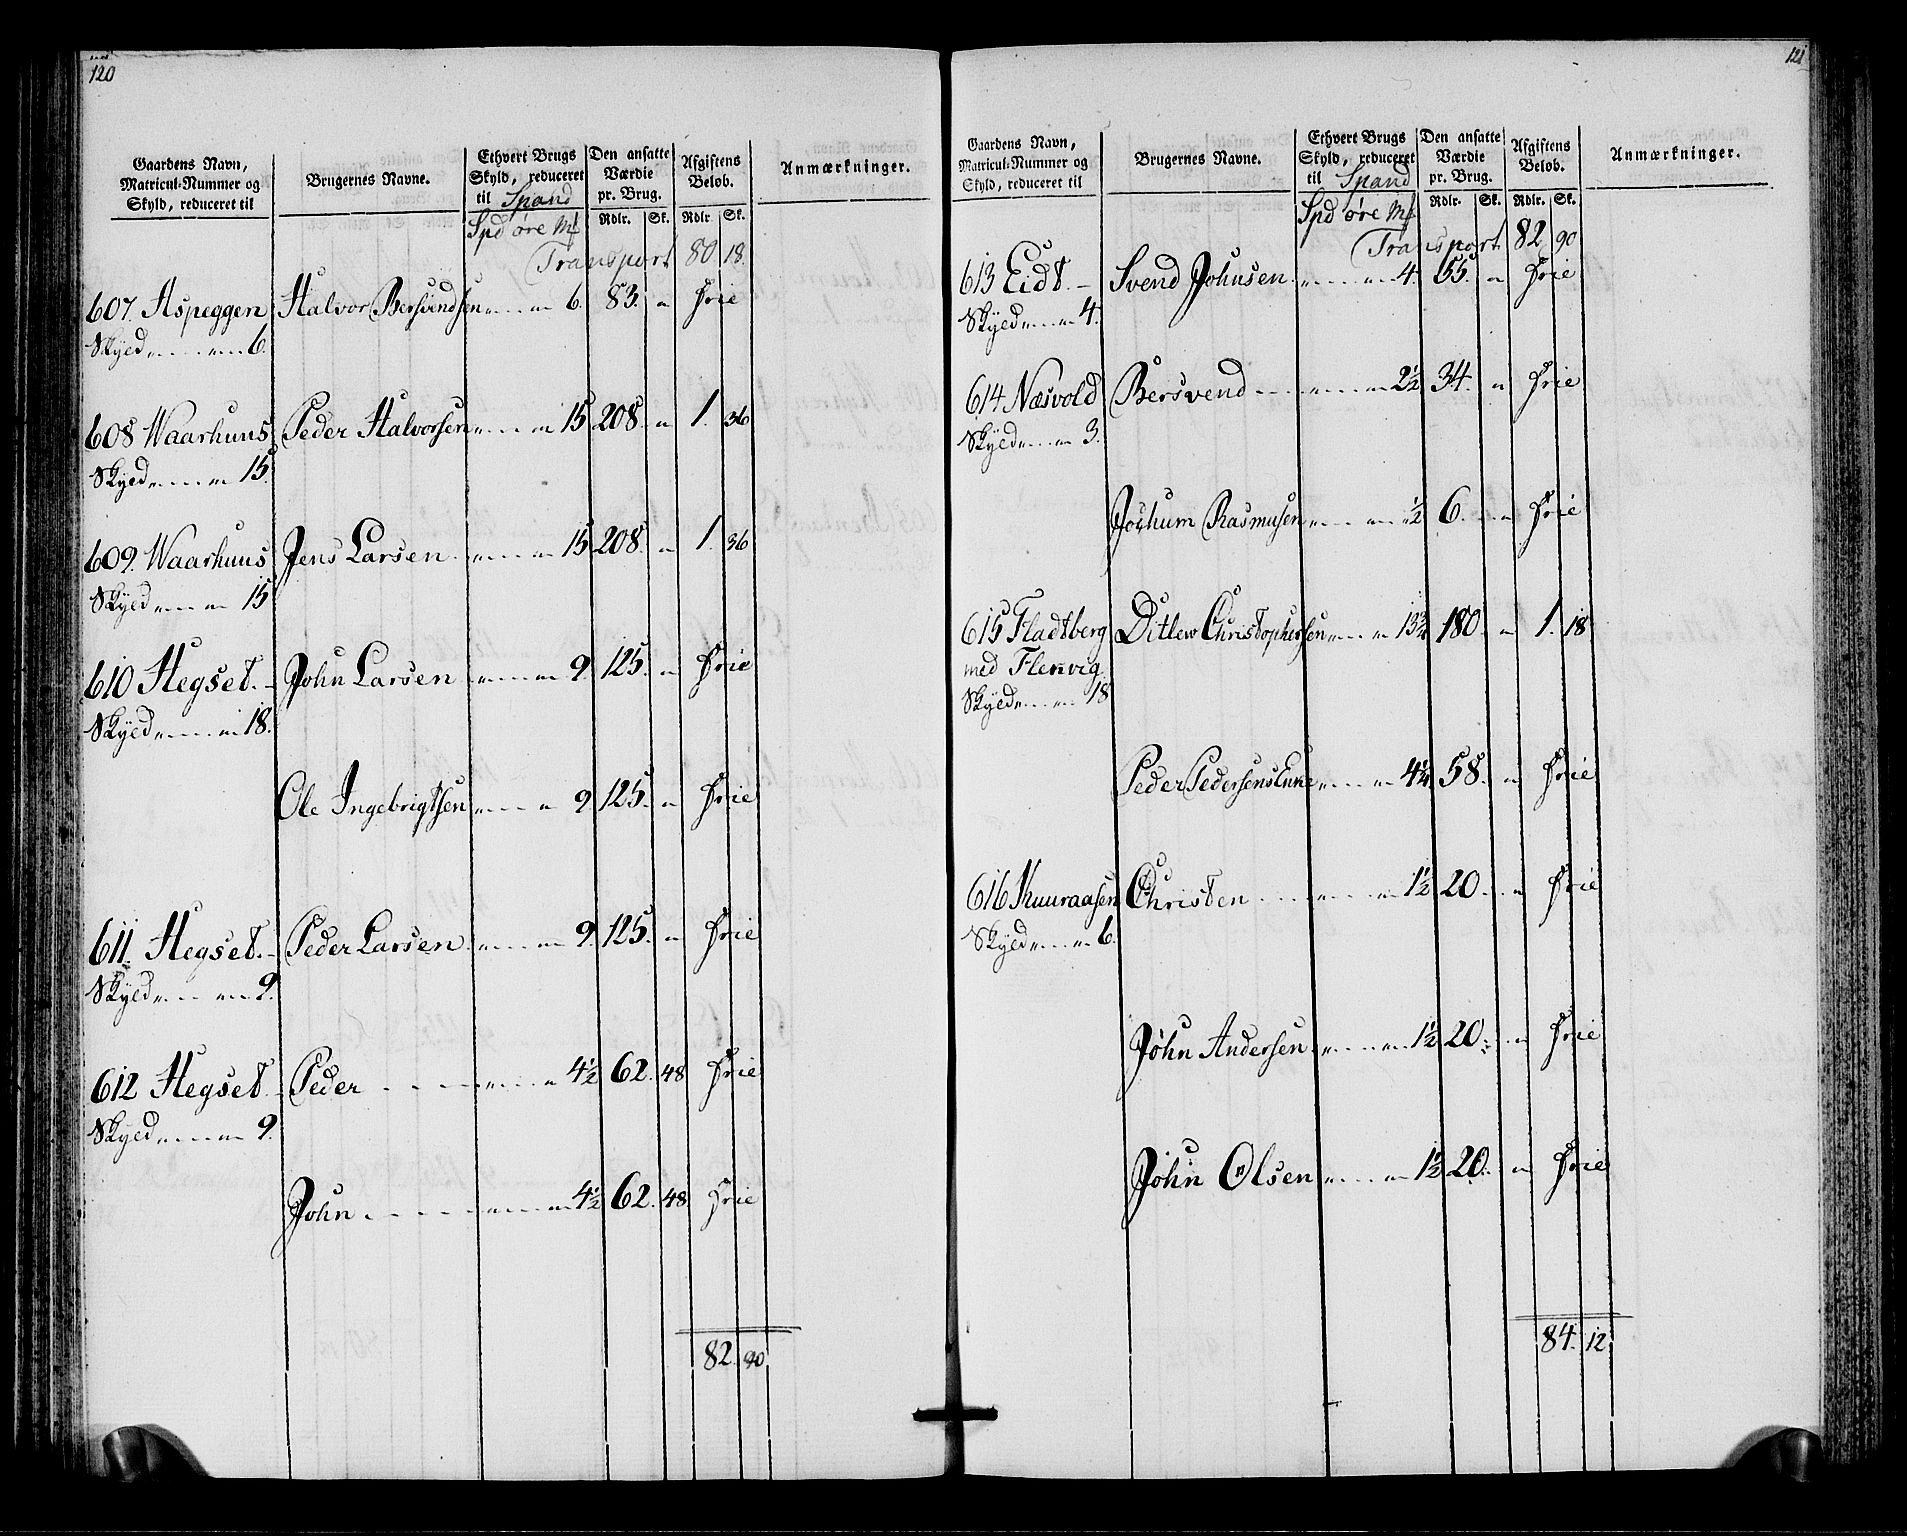 120
Gaardens Navn, Matricul-Nummer og Skyld, reduceret til
Brugernes Navne.
Ethvert Brugs Skyld, reduceret til Spand
Den ansatte Værdie pr. Brug.
Afgiftens Beløb.
Anmærkninger.
Spd øre Mf Rdlr. Sk. Rdlr Sk.
Transport 80 18.
607. Aspeggen Halvor Bersvendsen „ „ 6. 83. „ Frie
Skyld „ „ 6.
608 Waarhuus Peder Halvorsen „ „ 15 208. „ 1. 36
Skyld „ „ 15.
609. Waarhuus Jens Larsen „ „ 15 208. „ 1. 36
Skyld „ „ 15
610 Hegset. John Larsen „ „ 9 125. „ Frie
Skyld „ „ 18.
Ole Ingebrigtsen „ „ 9 125. „ Frie
611. Hegset. Peder Larsen „ „ 9. 125. „ Frie
Skyld „ „ 9.
612 Hegset. Peder „ „ 4½ 62. 48 Frie
Skyld „ „ 9.
John „ „ 4½ 62. 48 Frie
82. 90
121
Gaardens Navn, Matricul-Nummer og Skyld, reduceret til
Brugernes Navne.
Ethvert Brugs Skyld, reduceret til Spand
Den ansatte Værdie pr. Brug.
Afgiftens Beløb.
Anmærkninger.
Spd øre Mf Rdlr. Sk. Rdlr. Sk.
Transport 82 90
613 Eidt. Svend Johnsen „ „ 4. 55. „ Frie
Skyld „ „ 4.
614 Næsvold Bersvend „ „ 2½ 34. „ Frie
Skyld „ „ 3.
Jochum Rasmusen „ „ ½ 6. „ Frie
615 Fladtberg Ditlew Christophersen „ „ 13¾ 180. „ 1. 18
med Flenvig
Skyld „ „ 18
Peder Pedersens Enke „ „ 4¼ 58. „ Frie
616 Kuuraasen Christen „ „ 1½ 20. „ Frie
Skyld „ „ 6.
John Andersen „ „ 1½ 20. „ Frie
John Olsen „ „ 1½ 20. „ Frie
84. 12